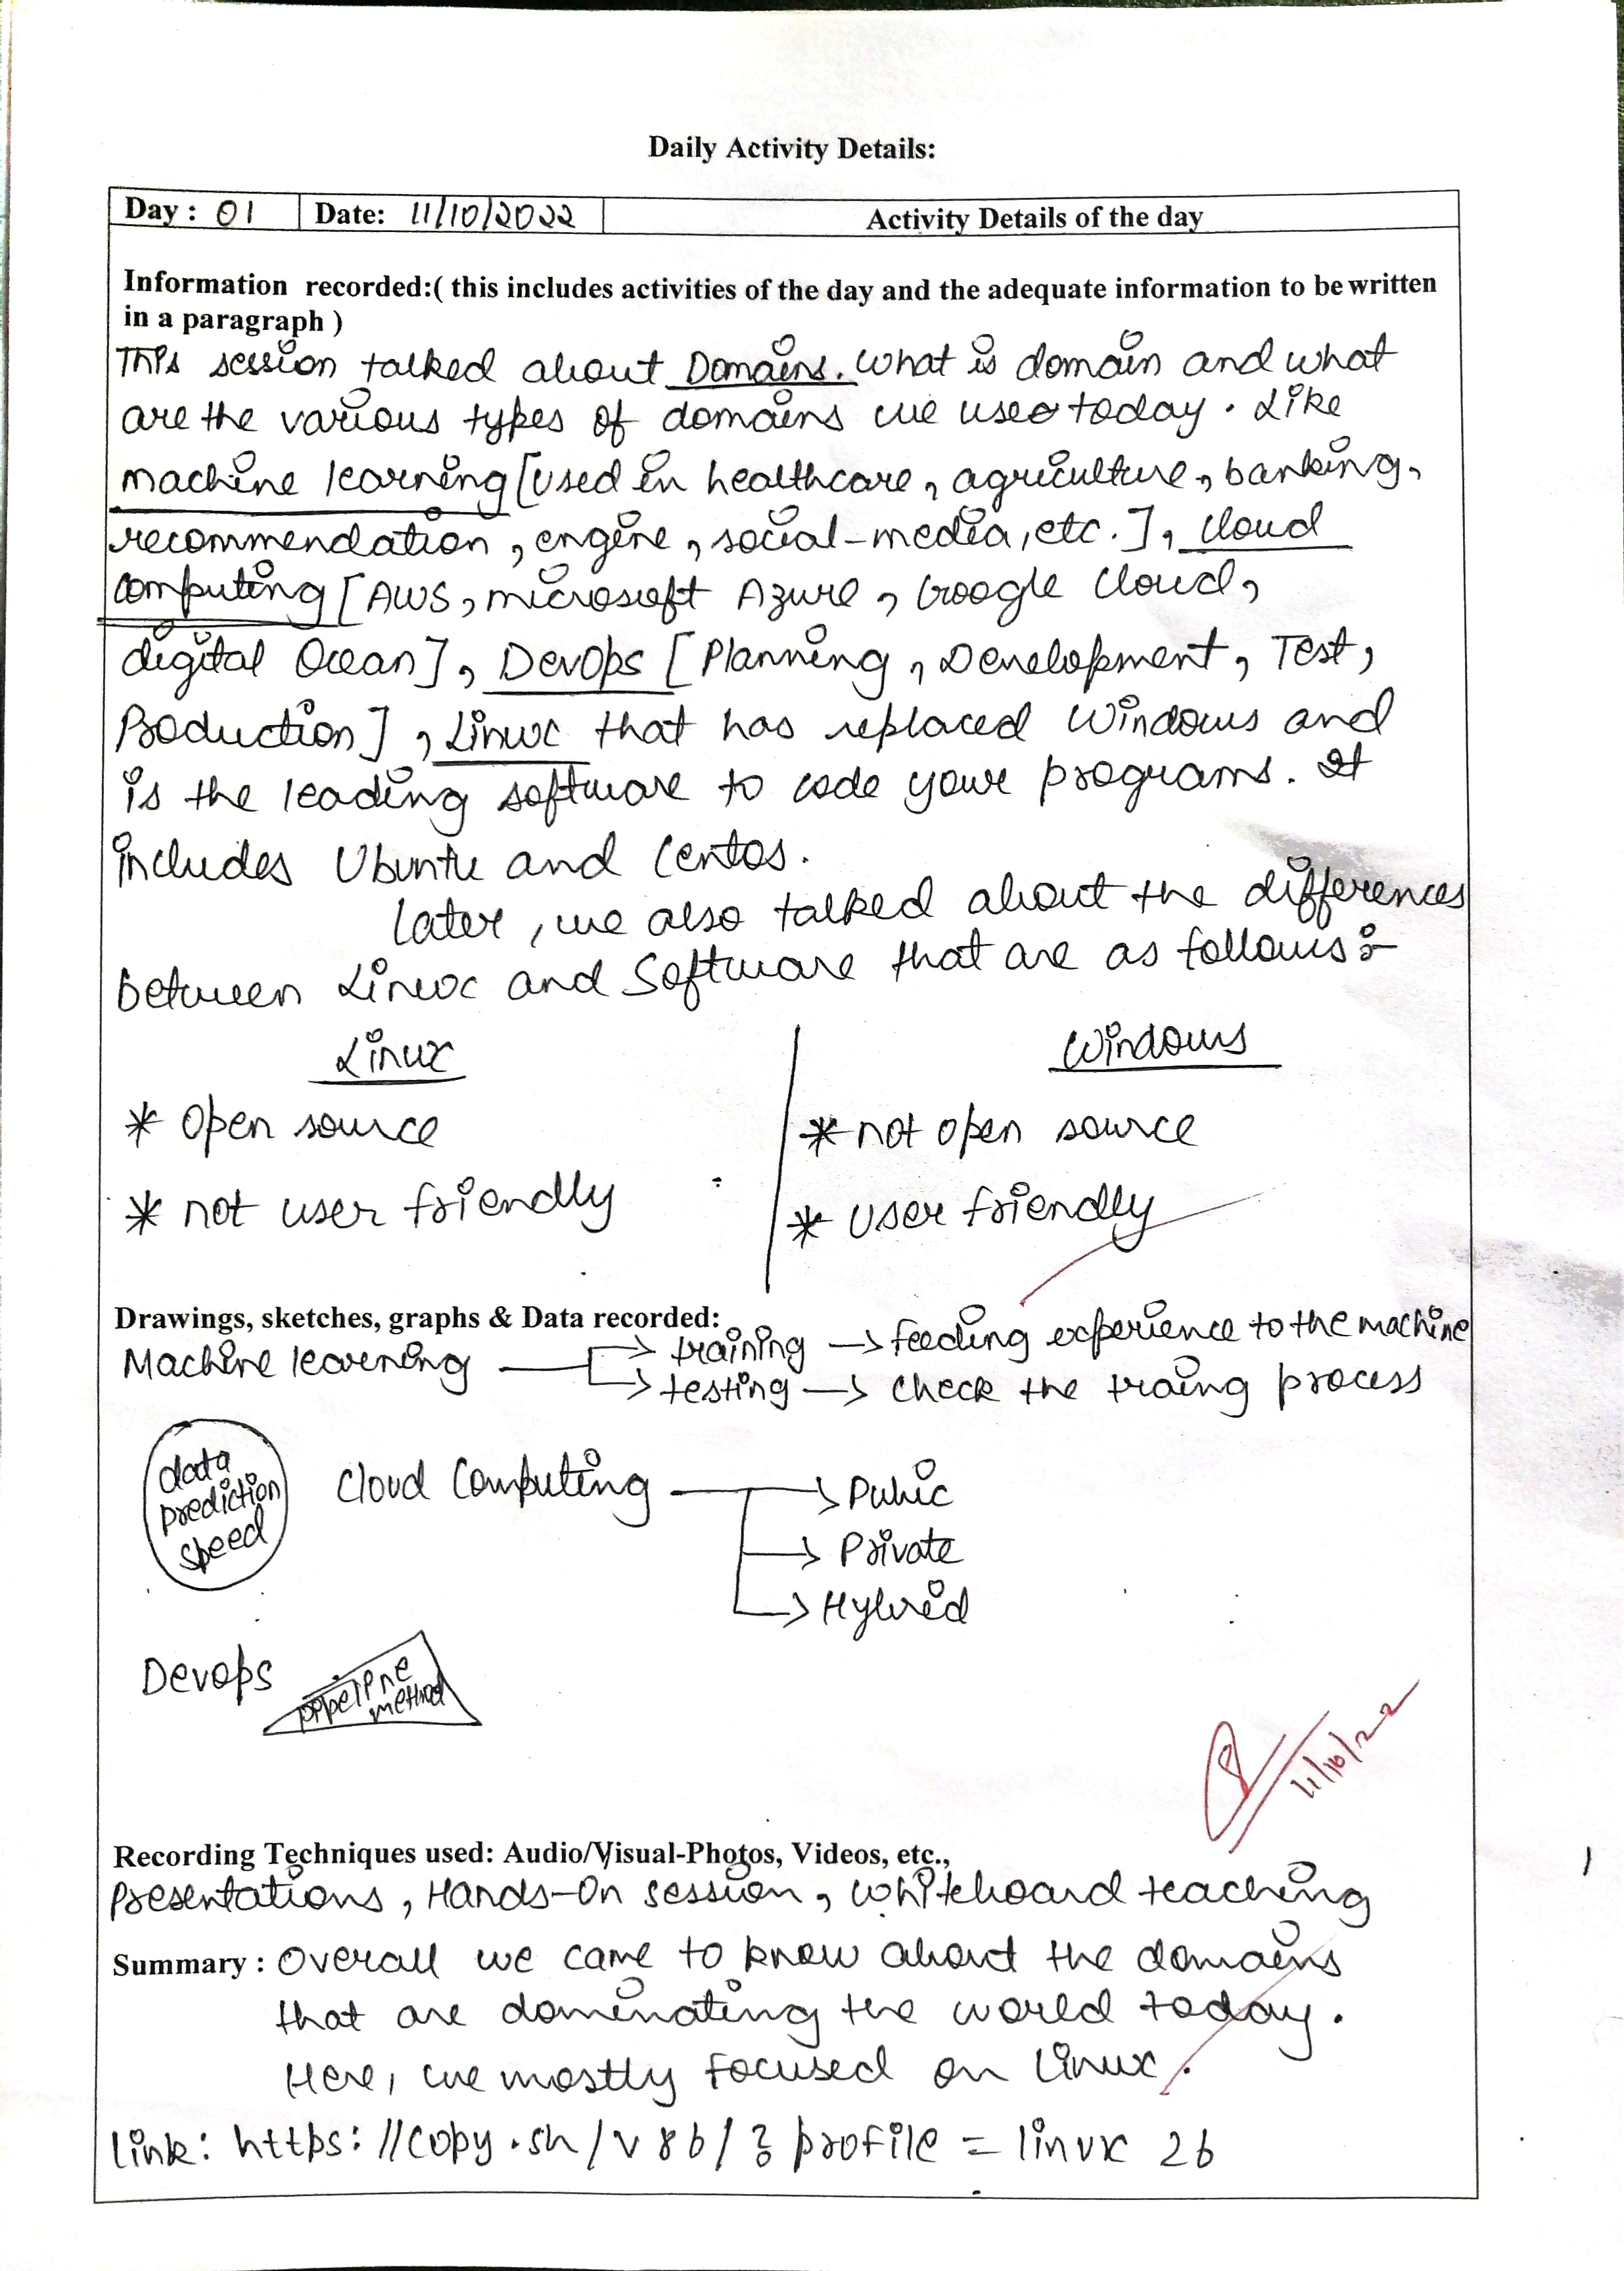 Daily Activity Details:
Day : 01 Date: 11/10/2022 Activity Details of the day
Information recorded:( this includes activities of the day and the adequate information to be written
in a paragraph )
This session talked about Domains. What is domain and what
are the various types of domains we use today. Like
machine learning [Used in healthcare, agriculture, banking,
recommendation, engine, social-media, etc.], cloud
computing [AWS, microsoft Azure, Google Cloud,
digital Ocean], DevOps [Planning, Development, Test,
Production], Linux that has replaced Windows and
is the leading software to code your programs. It
includes Ubuntu and Centos.
Later, we also talked about the differences
between Linux and Software that are as follows:-
Linux Windows
* Open source * not open source
* not user friendly * User friendly
Drawings, sketches, graphs & Data recorded:
Machine learning → training → feeding experience to the machine
→ testing → check the traing process
data
prediction
speed
Cloud Computing → Pubic
→ Private
→ Hybrid
Devops pipeline
method
11/10/22
Recording Techniques used: Audio/Visual-Photos, Videos, etc.,
Presentations, Hands-On session, Whiteboard teaching
Summary : Overall we came to know about the domains
that are dominating the world today.
Here, we mostly focused on Linux.
link: https://copy.sh/v86/?profile = linux 26